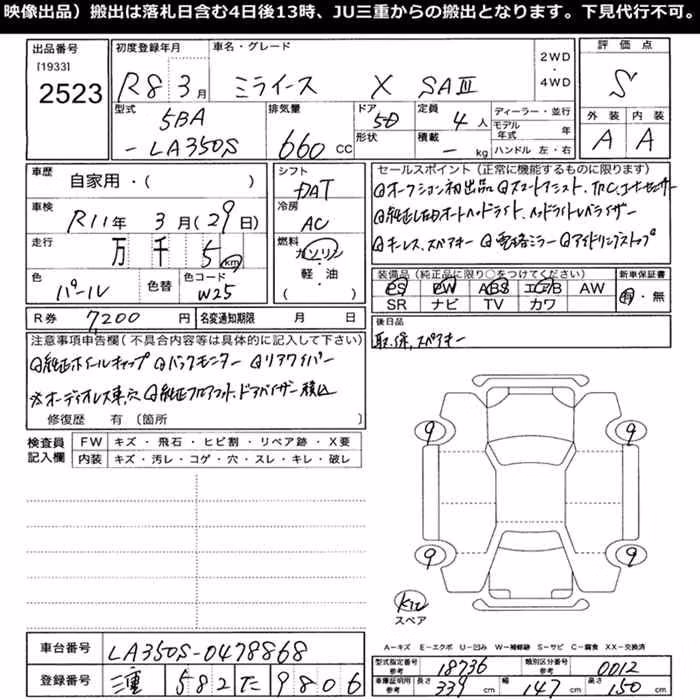 映像出品）搬出は落札日含む4日後13時、JU三重からの搬出となります。下見代行不可。
出品番号 初度登録年月 車名・グレード 2WD・4WD 評価点
[1933]
2523 R8 3月 ミライース X SAⅢ S
型式 排気量 ドア 定員 ディーラー・並行 外装 内装
5BA-LA350S 660cc 5D 4人 モデル年式 年 A A
形状 積載 - kg ハンドル 左・右
車歴 自家用・( ) シフト DAT セールスポイント（正常に機能するものに限ります）
車検 R11年 3月(29日) 冷房 AC
走行 万 千 5 km 燃料 ガソリン・軽・油 ( )
◎オークション初出品 ◎スマートアシスト、TRC、コーナーセンサー
◎純正LEDオートヘッドライト、ヘッドライトレベライザー
◎キーレス、スペアキー ◎電格ミラー ◎アイドリングストップ
色 パール 色替 色コード W25
装備品（純正品に限り○をつけてください） 新車保証書
PS PW ABS エアB AW 有・無
SR ナビ TV カワ
R券 7,200円 名変通知期限 月 日
後日品
取、保、スペアキー
注意事項申告欄（不具合内容等は具体的に記入して下さい）
◎純正ホイールキャップ ◎バックモニター ◎リアワイパー
※オーディオレス車、穴 ◎純正フロアマット、ドアバイザー積込
修復歴 有 〔箇所 〕
検査員記入欄 FW キズ・飛石・ヒビ割・リペア跡・X要
内装 キズ・汚レ・コゲ・穴・スレ・キレ・破レ
9 9
9 9
Kit
スペア
A－キズ E－エクボ U－凹み W－補修跡 S－サビ C－腐食 XX－交換済
車台番号 LA350S-0478868
登録番号 三重 582 た 9806
型式指定番号 参考 18736 類別区分番号 参考 0012
車庫証明用 参考 長さ 339cm 幅 147cm 高さ 150cm